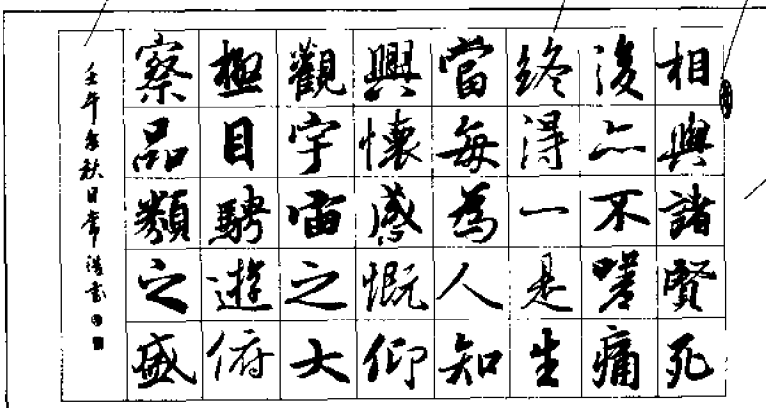 相與諸賢死
後亦不嗟痛
終得一是生
當每為人知
興懷感慨仰
觀宇宙之大
極目騁遊俯
察品類之盛
壬午年秋日常書